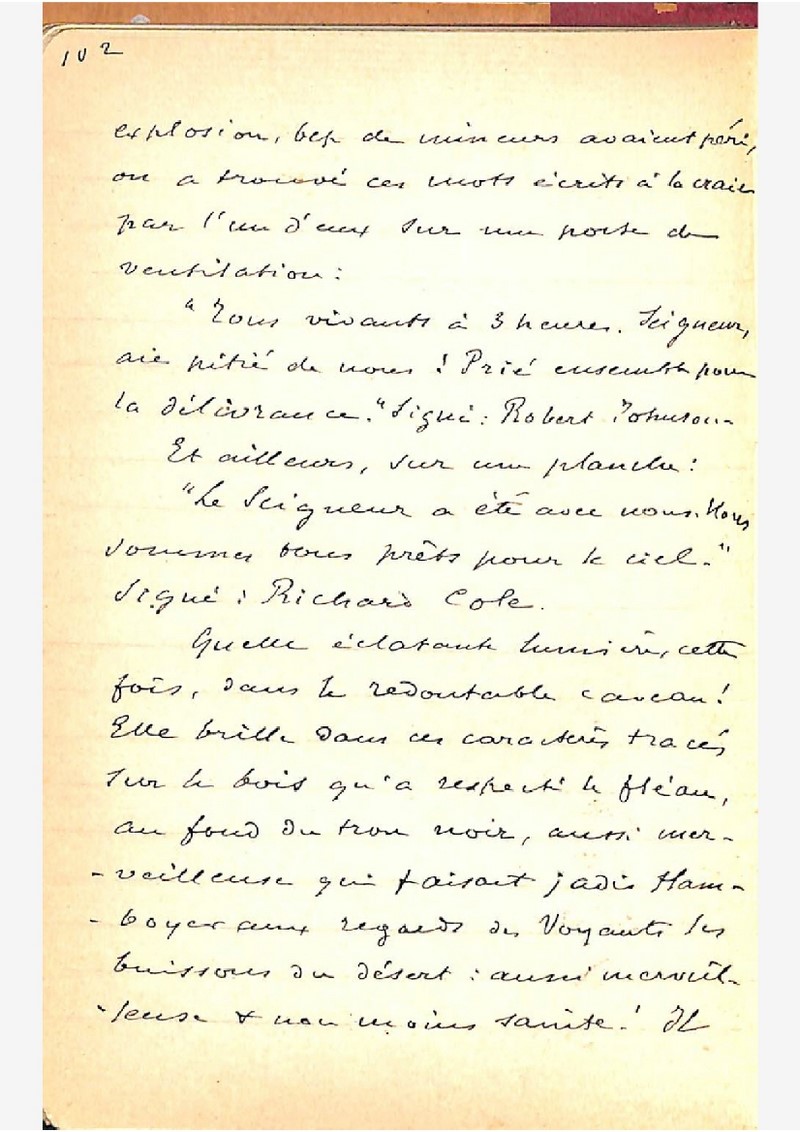 102
explosion, bcp de mineurs avaient péri,
on a trouvé ces mots écrits à la craie
par l'un d'eux sur une porte de
ventilation :
"Tous vivants à 3 heures. Seigneur,
aie pitié de nous ! Prié ensemble pour
la délivrance." Signé : Robert Johnson.
Et ailleurs, sur une planche :
"Le Seigneur a été avec nous. Nous
sommes tous prêts pour le ciel."
Signé : Richard Cole.
Quelle éclatante lumière, cette
fois, dans le redoutable caveau !
Elle brille dans ces caractères tracés
sur le bois qu'a respecté le fléau,
au fond du trou noir, aussi mer-
-veilleuse qui faisait jadis flam-
-boyer aux regards des Voyants les
buissons du désert : aussi merveil-
-leuse & non moins sainte ! Il